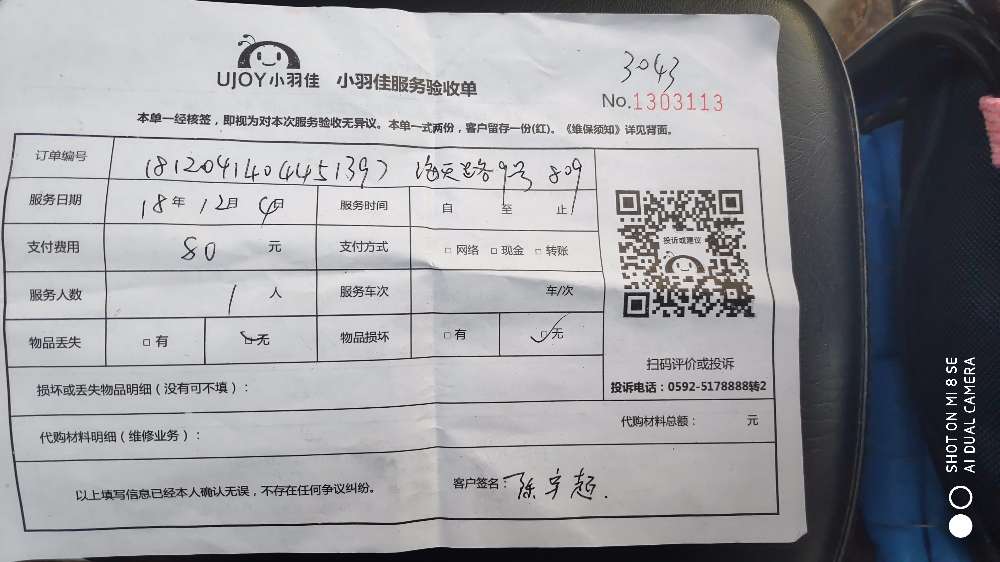 3043
UJOY小羽佳 小羽佳服务验收单
No.1303113
本单一经核签，即视为对本次服务验收无异议。本单一式两份，客户留存一份(红)。《维保须知》详见背面。
订单编号 1812041404451397 海天路9号 809
服务日期 18年12月4日 服务时间 自 至 止
支付费用 80 元 支付方式 □网络 □现金 □转账
投诉或建议
服务人数 1 人 服务车次 车/次
物品丢失 □有 ☑无 物品损坏 □有 ☑无
扫码评价或投诉
投诉电话：0592-5178888转2
损坏或丢失物品明细（没有可不填）：
代购材料明细（维修业务）： 代购材料总额： 元
以上填写信息已经本人确认无误，不存在任何争议纠纷。 客户签名：陈宇超
SHOT ON MI 8 SE
AI DUAL CAMERA